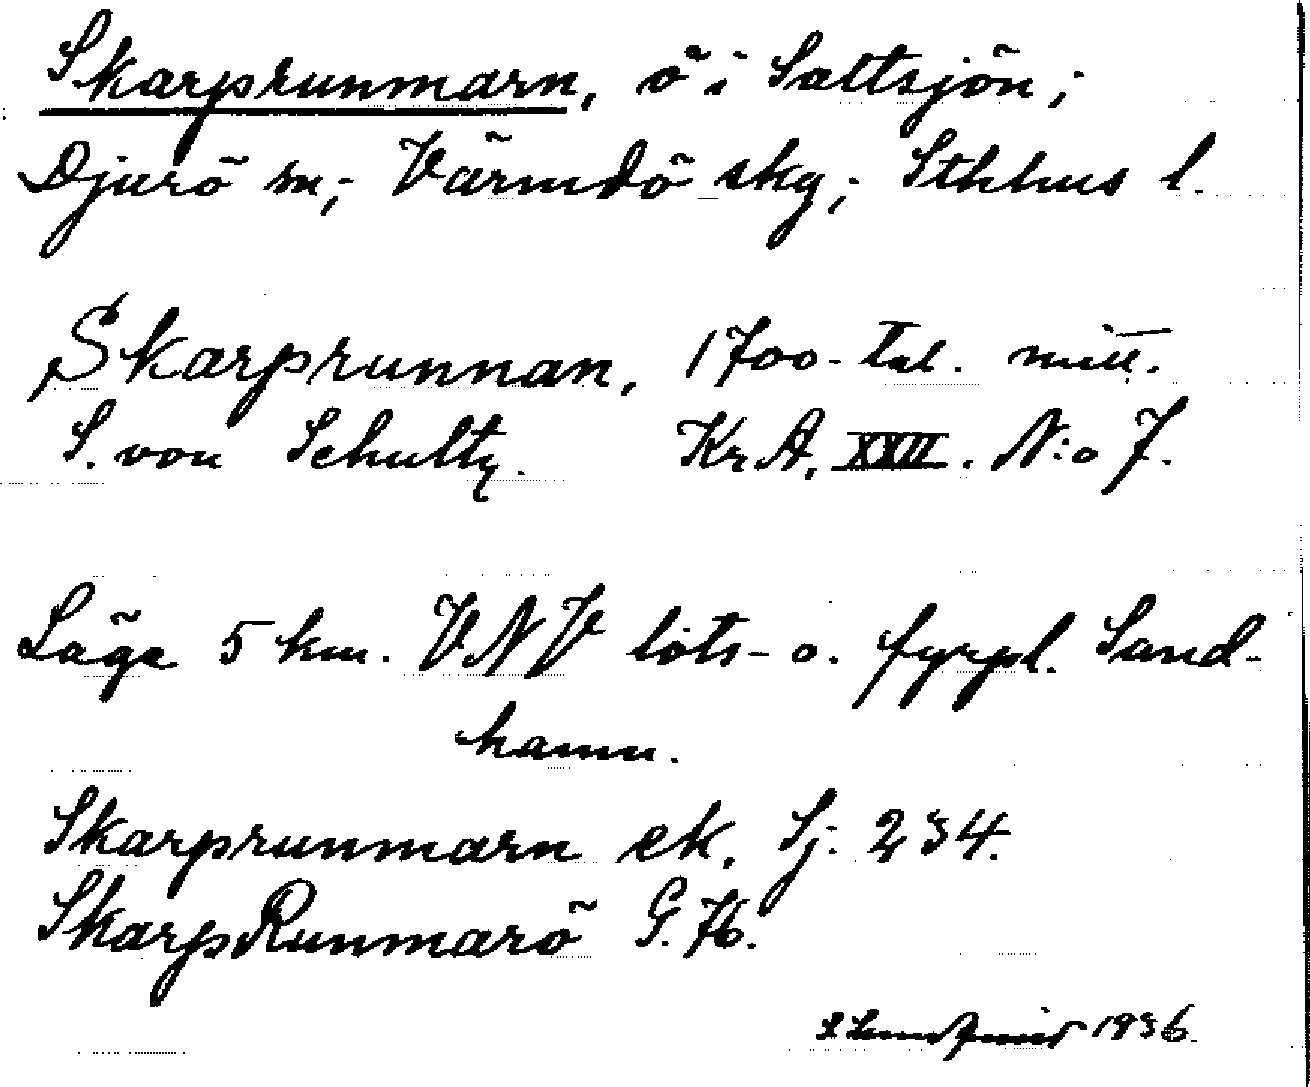 Skarprunmarn, ö i Saltsjön;
Djurö sn; Värmdö skg; Sthlms l.
Skarprunnan, 1700-tal. mitt.
S. von Schultz. Kr.A. XXII. N:o 7.
Läge 5 km. VNV lots- o. fyrpl. Sand-
hamn.
Skarprunmarn ek. Sj: 234.
SkarpRunmarö G. 76.
1936.